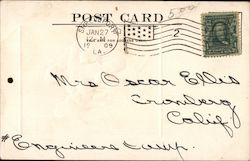 POST CARD
500
JAN 27
1909
LA.
2
Mrs Oscar Ellis
Cromberg
Calif
# Engineers Camp.